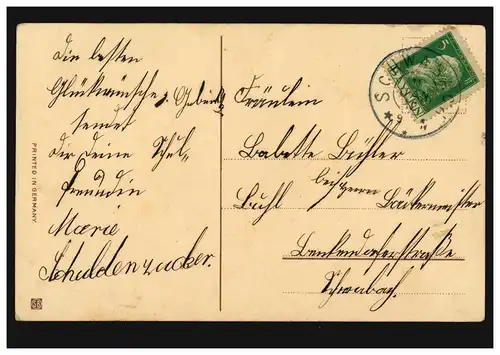 Die besten
Glückwünsche z. Geburtstag
sendet
Dir Deine Schul-
freundin
Marie
Schuldenzucker.
PRINTED IN GERMANY
Fräulein
Babette Bühler
bei Herrn
Buhl Bäckermeister
Benkendorferstraße
Schwabach.
5